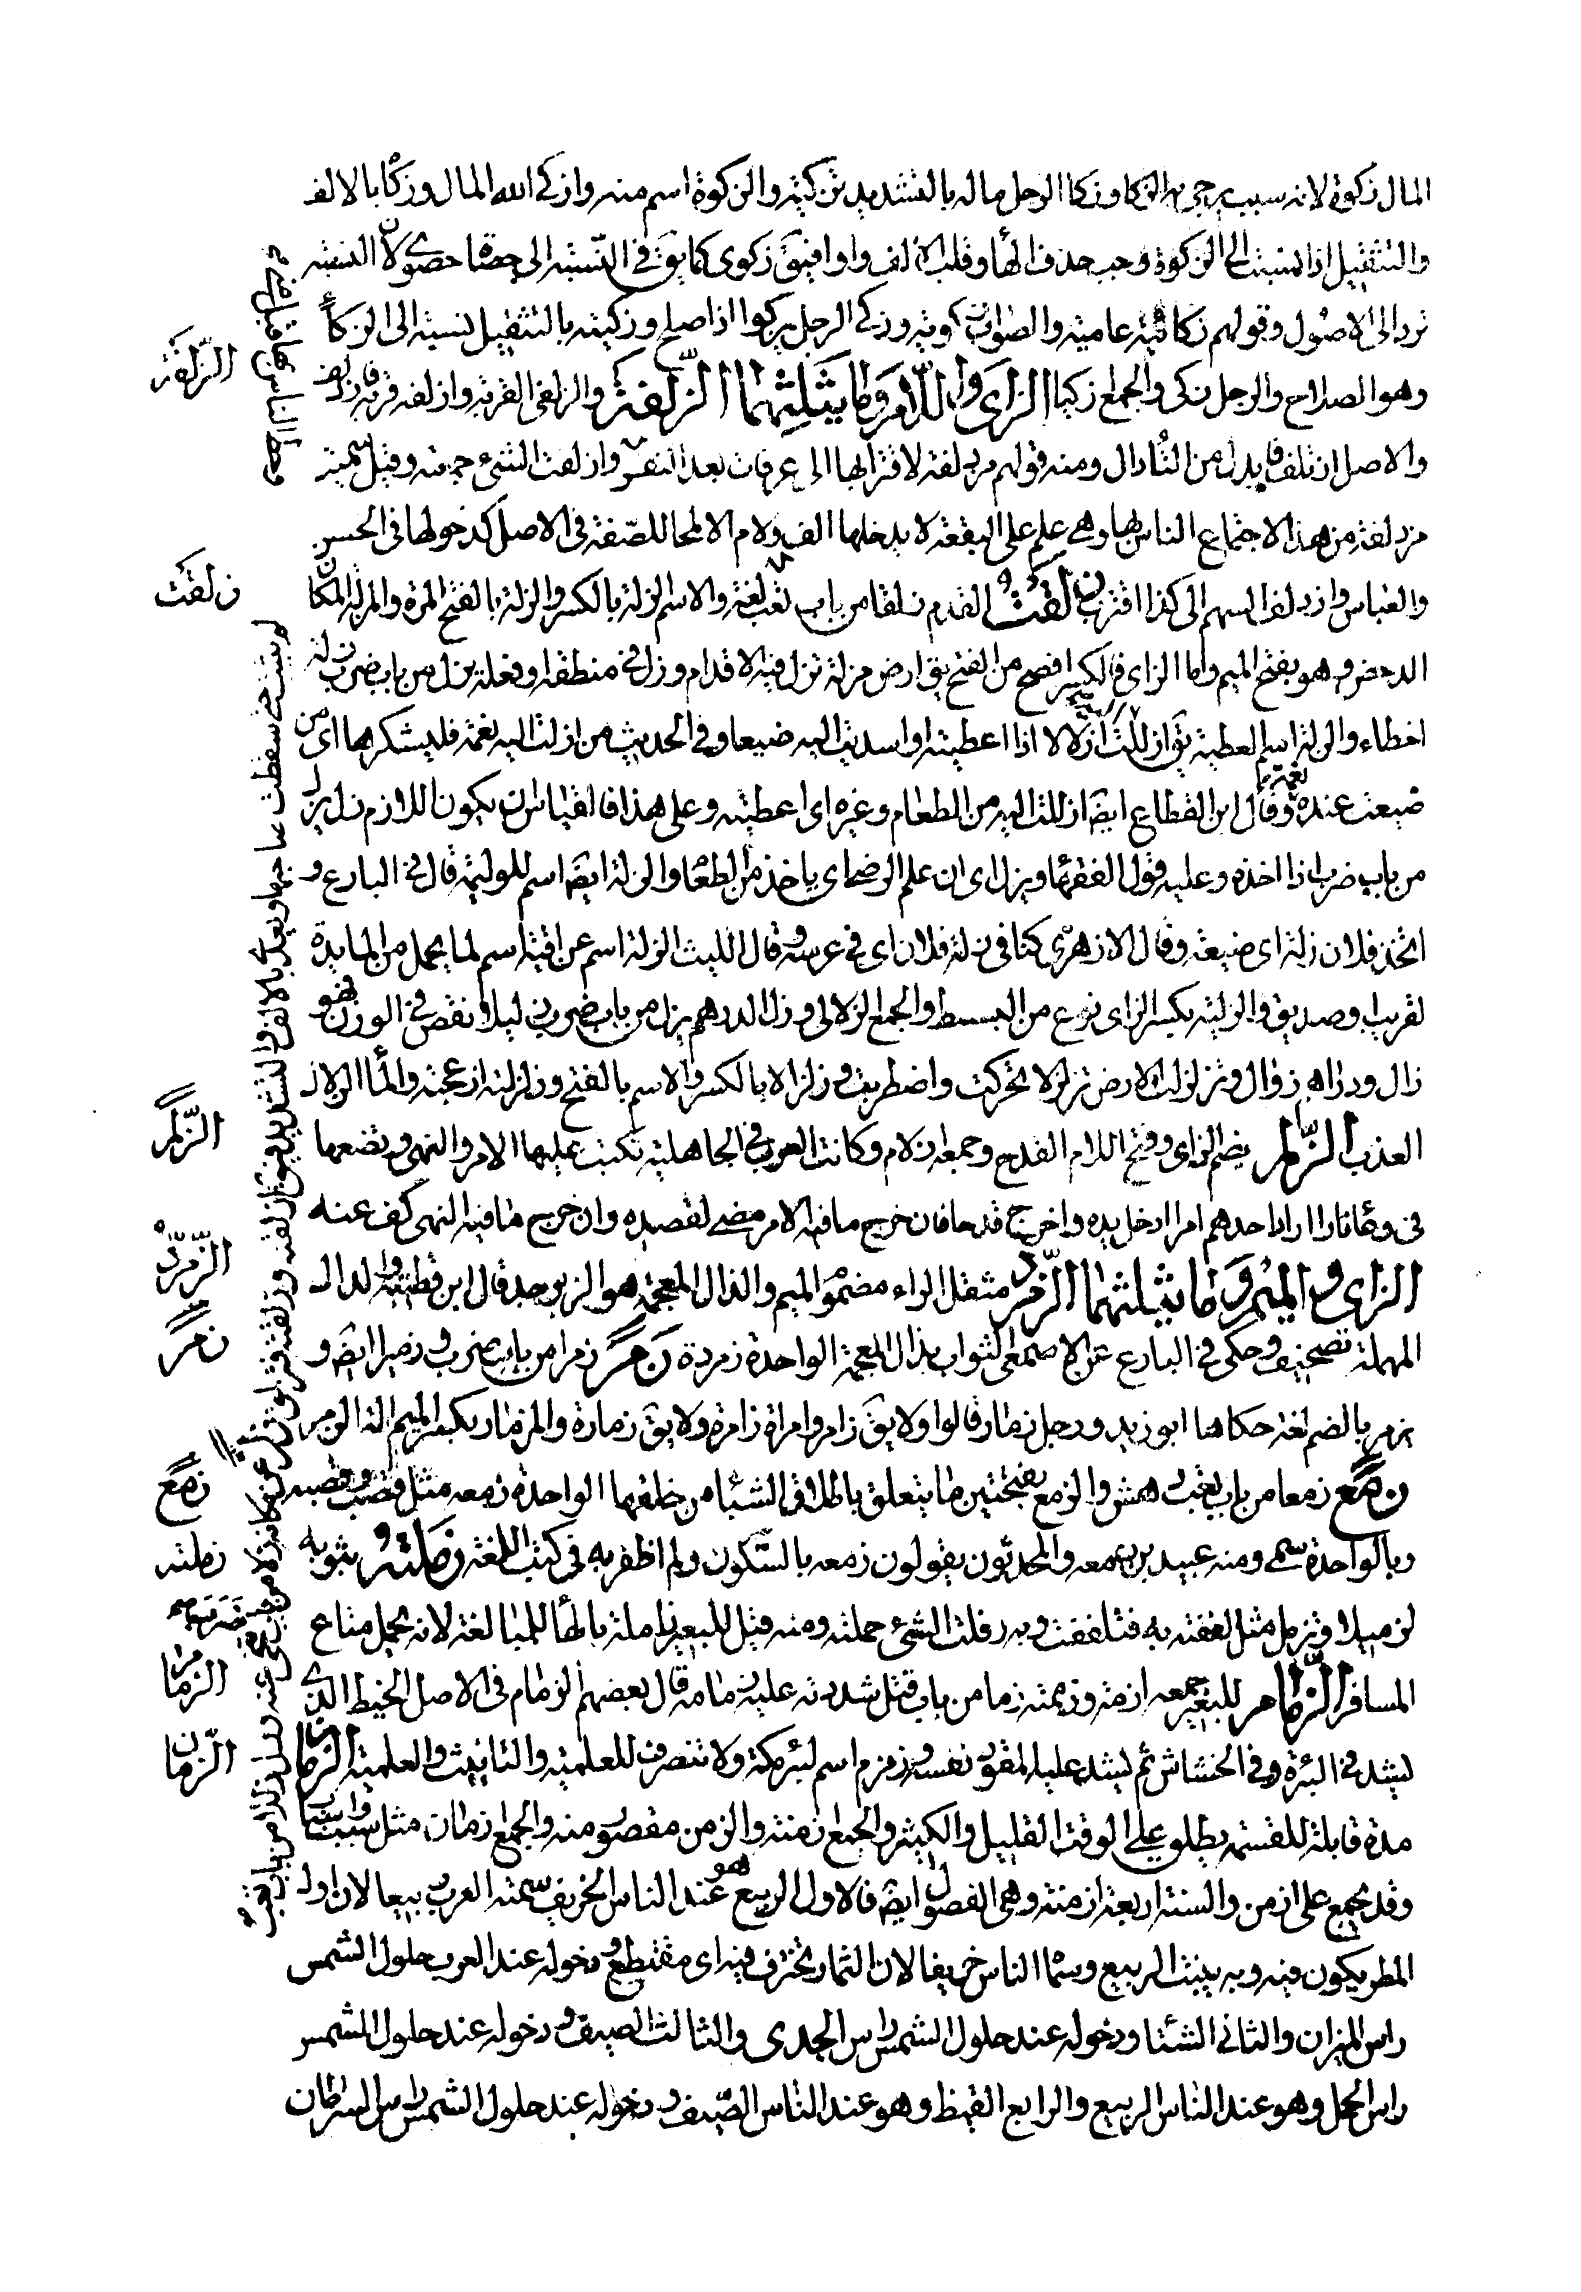 المال زكوة لانه سبب يرجى به الزكا وزكا الرجل ماله بالتشديد تزكيته والزكوة اسم منه وازكى الله المال وزكا بالالف
والتثقيل اذا نسبت الى الزكوة وجب حذف الها وقلب الالف واوا فيق زكوى كما يق في النسبة الى حصاة حصوى لان النسبة
ترد الى الاصول وقولهم زكاتية عامية والصواب زكوية وزكى الرجل يزكوا اذا صلح وزكيته بالتثقيل نسبته الى الزكاء
وهو الصلاح والرجل زكى والجمع ازكيا الزاى واللام وما يثلثهما الزلفة والزلفى القربة وازلفه قربه فازدلف
والاصل ازتلف فابدل من التا دال ومنه قولهم مزدلفة لاقترابها الى عرفات وازلفت الشىء جمعته وقيل سميت
مزدلفة من هذا لاجتماع الناس بها وهى علم على البقعة لا يدخلها الف ولام الا لمحا للصفة في الاصل كدخولها في الحسن
والعباس وازدلف السهم الى كذا اقترب زلقت القدم زلقا من باب تعب لغة والاسم الزلة بالكسر والزلة بالفتح المرة والمزلة المكان
الدحض وهو بفتح الميم واما الزاى فالكسر افصح من الفتح يق ارض مزلة تزل فيه الاقدام وزل في منطقه او فعله يزل من باب ضرب زلة
اخطاء والزلة اسم العطية يق ازللت ازلالا اذا اعطيته او اسديت اليه صنيعا وفي الحديث من ازلت اليه نعمة فليشكرها اى من
صنعت عنده نعمة وقال ابن القطاع ايضا ازللت اليه من الطعام وغيره اى اعطيته وعلى هذا فالقياس ان يكون اللازم زل يزل
من باب ضرب اذا اخذه وعليه قول الفقها ويزل اى ان علم الرضا اى ياخذ من الطعام والزلة ايضا اسم للوليمة قال في البارع و
اتخذ فلان زلة اى صنيعة وقال الازهرى كنا في زلة فلان اى في عرسه وقال الليث الزلة اسم عراقية اسم لما يحمل من المايدة
لقريب او صديق والزلية بكسر الزاى نوع من البسط والجمع الزلالى وزل الدرهم يزل من باب ضرب زليلا نقص في الوزن فهو
زال ودراهم زوال وتزلزلت الارض تزلزلا تحركت واضطربت وزلزالا بالكسر والاسم بالفتح وزلزلته ازعجته والما الزلال
العذب الزلم بضم الزاى وفتح اللام القدح وجمعه ازلام وكانت العرب في الجاهلية تكتب عليها الامر والنهى وتضعها
في وعا فاذا اراد احدهم امرا ادخل يده واخرج قدحا فان خرج ما فيه الامر مضى لقصده وان خرج ما فيه النهى كف عنه
الزاى والميم وما يثلثهما الزمرد مثقل الراء مضموم الميم والذال المعجمة هو الزبرجد قال ابن قتيبة والدال
المهملة تصحيف وحكى في البارع عن الاصمعى الصواب بذال المعجمة الواحدة زمردة زمر زمرا من باب ضرب وزميرا ايضا و
يزمر بالضم لغة حكاها ابو زيد ورجل زمار قالوا ولا يق زامر وامراة زامرة ولا يق زمارة والمزمار بكسر الميم الة الزمر
زمع زمعا من باب تعب دهش والزمع بفتحتين ما يتعلق باظلاف الشاء من خلفها الواحدة زمعه مثل قصب وقصبه
وبالواحدة سمى ومنه عبيد بن زمعه والمحدثون يقولون زمعه بالسكون ولم اظفر به في كتب اللغة زملته بثوبه
تزميلا وتزمل مثل لففته به فتلفف وبه زملت الشىء حملته ومنه قيل للبعير زاملة بالها للمبالغة لانه يحمل متاع
المسافر الزمام للبعير جمعه ازمة وزممته زما من باب قتل شددت عليه زمامه قال بعضهم الزمام في الاصل الخيط الذى
يشد في البرة وفي الخشاش ثم يشد عليه المقود نفسه وزمزم اسم لبئر مكة ولا تنصرف للعلمية والتانيث والعلمية الزمان
مدة قابلة للقسمة يطلق على الوقت القليل والكثير والجمع ازمنة والزمن مقصور منه والجمع ازمان مثل سبب واسباب
وقد يجمع على ازمن والسنة اربعة ازمنة وهى الفصول ايضا فالاول الربيع وهو عند الناس الخريف سمته العرب ربيعا لان اول
المطر يكون فيه وبه ينبت الربيع وسماه الناس خريفا لان الثمار تخترف فيه اى تقتطع ودخوله عند العرب حلول الشمس
راس الميزان والثانى الشتا ودخوله عند حلول الشمس راس الجدى والثالث الصيف ودخوله عند حلول الشمس
راس الحمل وهو عند الناس الربيع والرابع القيظ وهو عند الناس الصيف ودخوله عند حلول الشمس راس السرطان
الزلفة
زلقت
الزلم
الزمرد
زمر
زمع
زملته
الزمام
الزمان